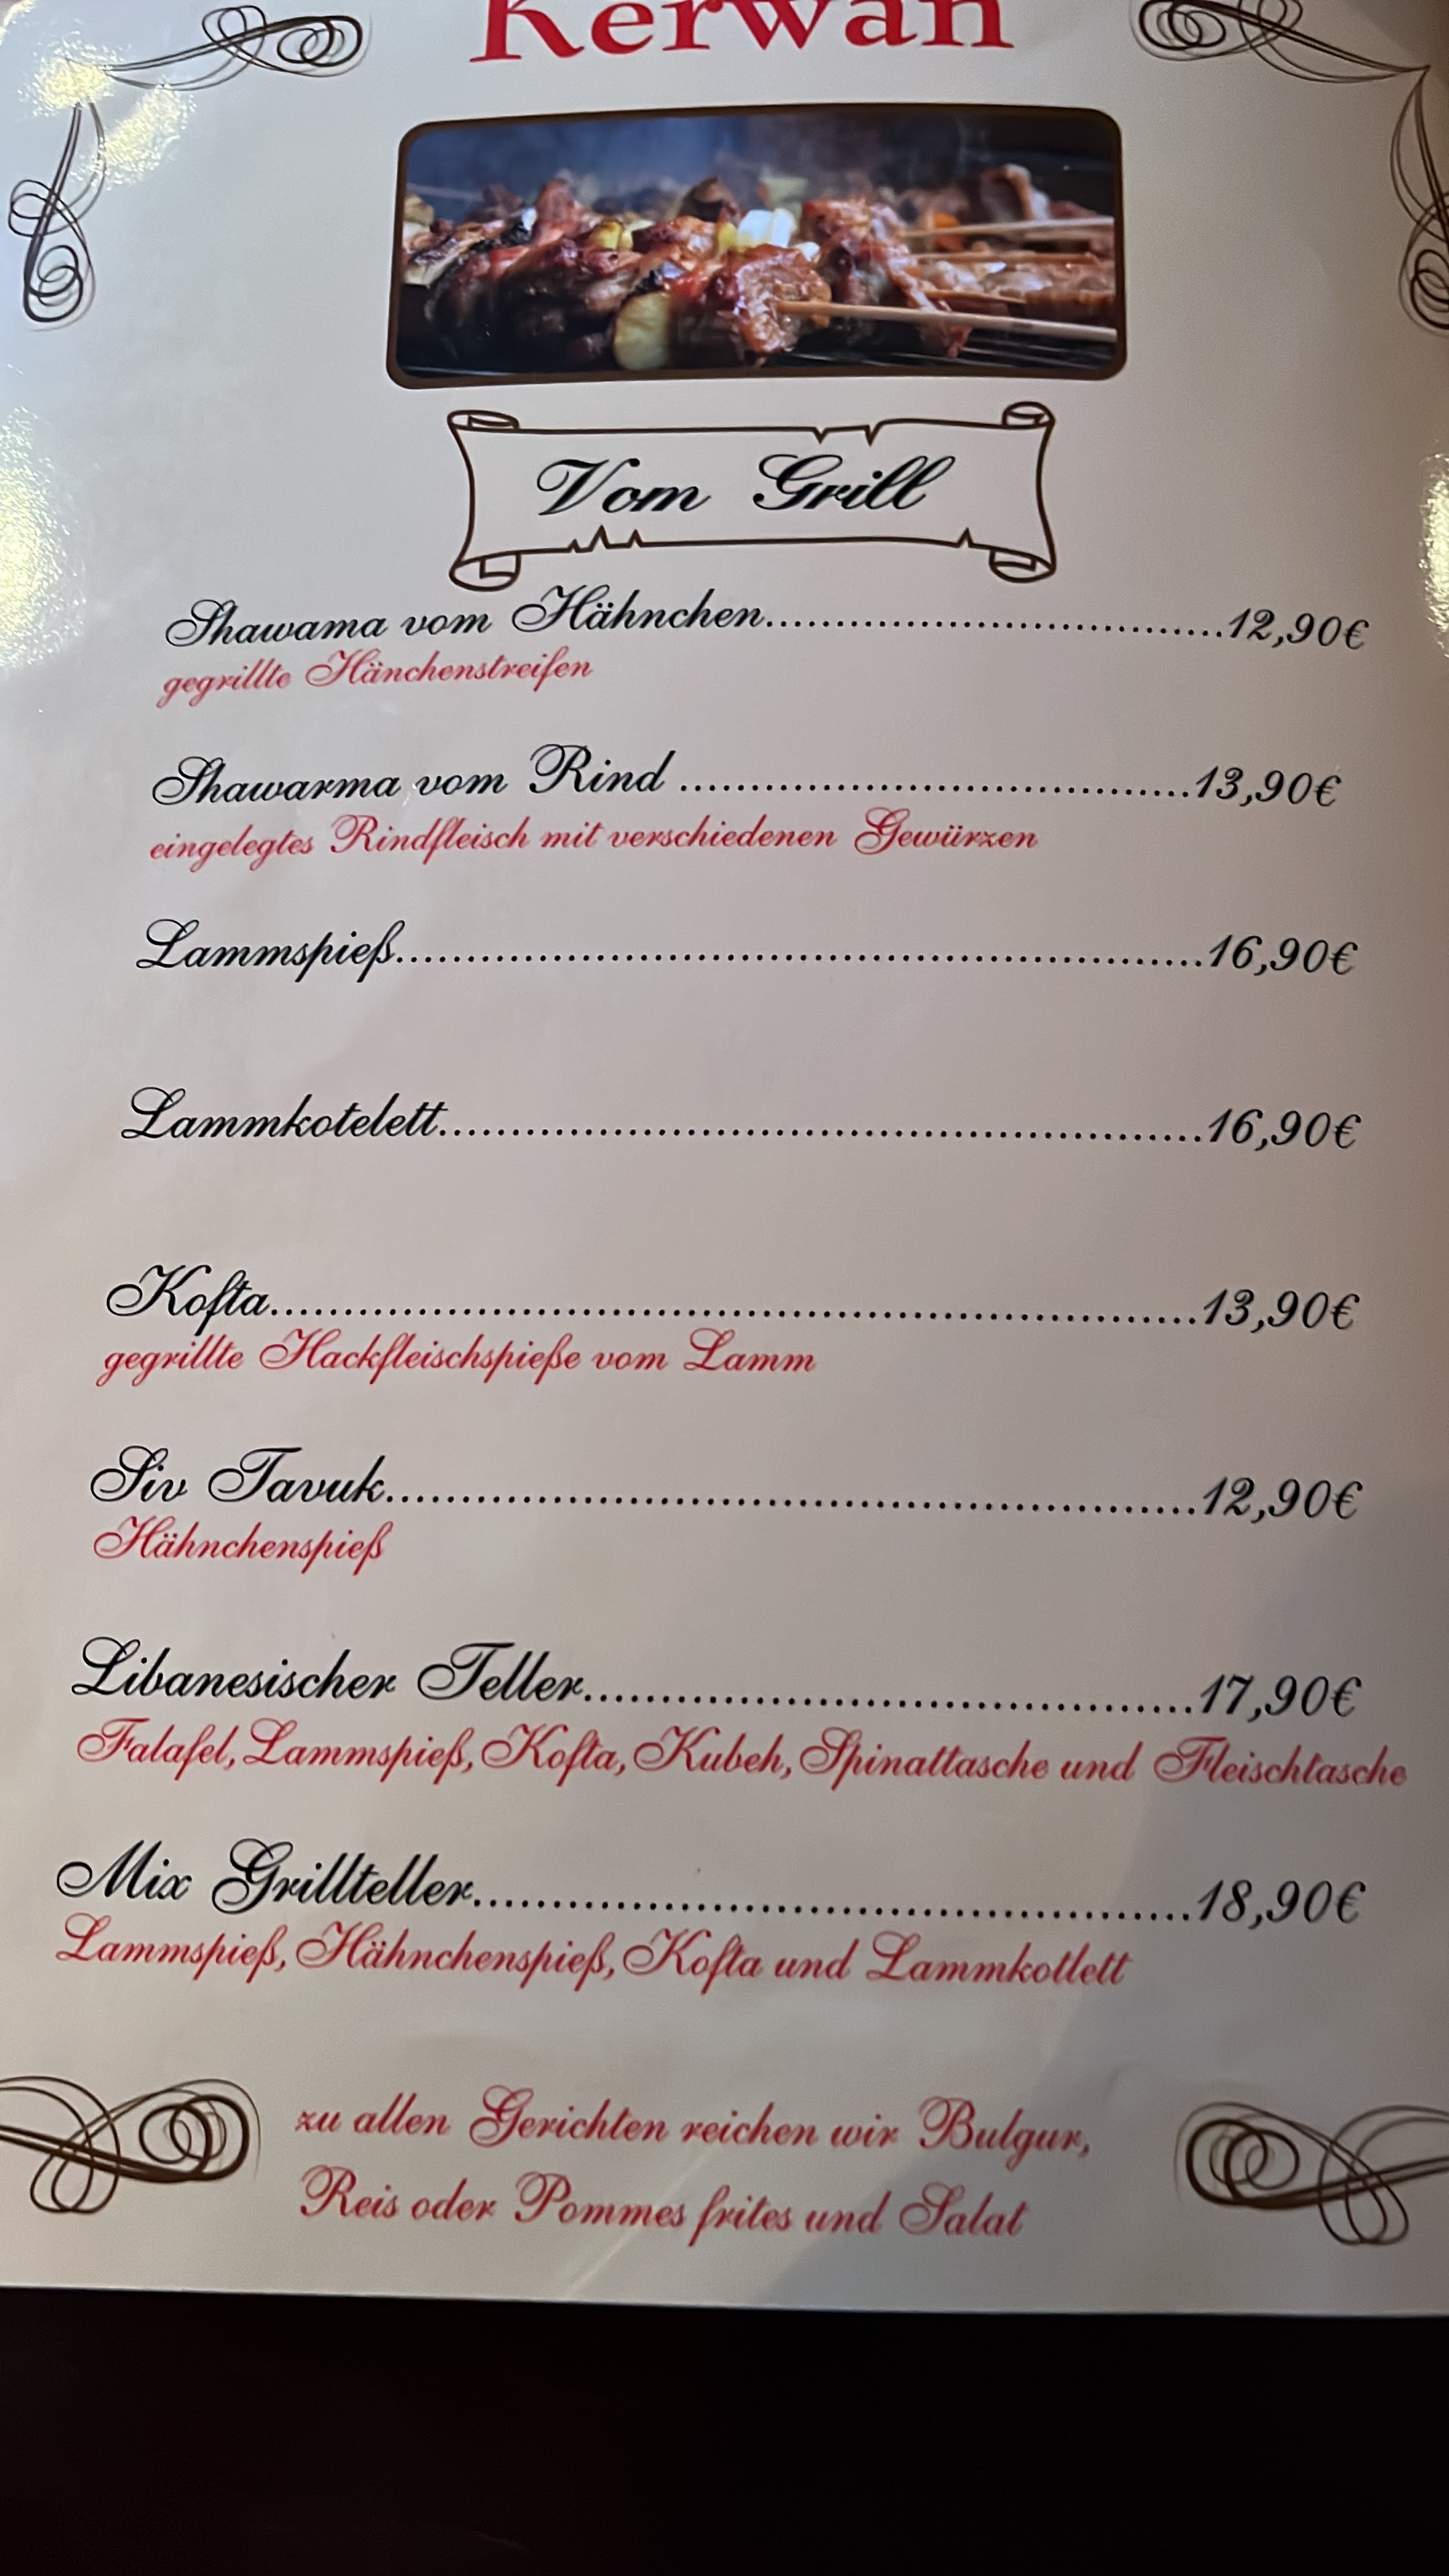 Kerwan
Vom Grill
Shawama vom Hähnchen................................12,90€
gegrillte Hänchenstreifen
Shawarma vom Rind ....................................13,90€
eingelegtes Rindfleisch mit verschiedenen Gewürzen
Lammspieß.........................................................16,90€
Lammkotelett......................................................16,90€
Kofta.................................................................13,90€
gegrillte Hackfleischspieße vom Lamm
Siv Tavuk.........................................................12,90€
Hähnchenspieß
Libanesischer Teller..........................................17,90€
Falafel, Lammspieß, Kofta, Kubeh, Spinattasche und Fleischtasche
Mix Grillteller..................................................18,90€
Lammspieß, Hähnchenspieß, Kofta und Lammkotlett
zu allen Gerichten reichen wir Bulgur,
Reis oder Pommes frites und Salat